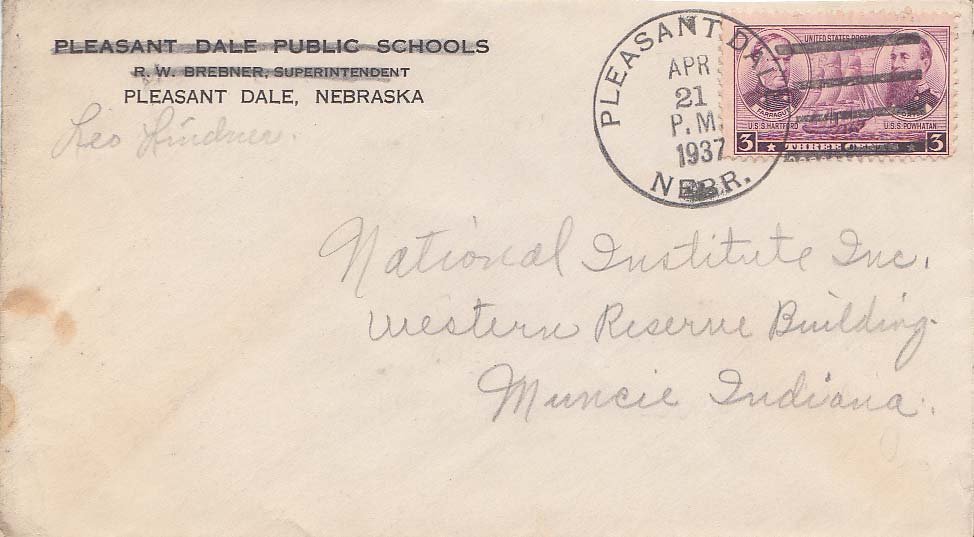 PLEASANT DALE PUBLIC SCHOOLS
R. W. BREBNER, SUPERINTENDENT
PLEASANT DALE, NEBRASKA
Leo Lindner.
PLEASANT DALE
APR
21
P.M.
1937
NEBR.
UNITED STATES POSTAGE
FARRAGUT
U.S.S. HARTFORD U.S.S. POWHATAN
3 THREE CENTS 3
National Institute Inc.
Western Reserve Building.
Muncie Indiana.